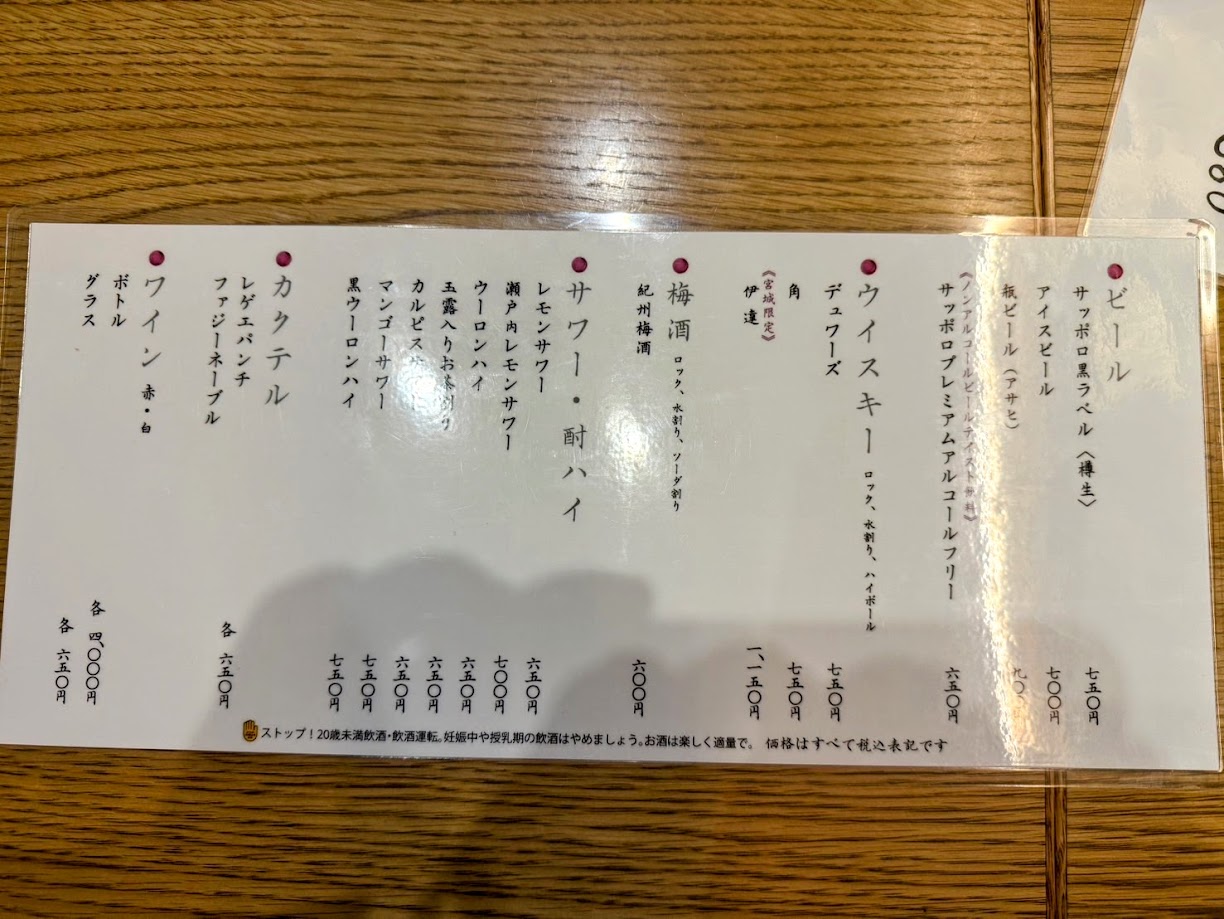 ビール
サッポロ黒ラベル〈樽生〉 七五〇円
アイスビール 七〇〇円
瓶ビール(アサヒ) 九〇〇円
《ノンアルコールビールテイスト飲料》
サッポロプレミアムアルコールフリー 六五〇円
ウイスキー ロック、水割り、ハイボール
デュワーズ 七五〇円
角 七五〇円
《宮城限定》
伊達 一、一五〇円
梅酒 ロック、水割り、ソーダ割り
紀州梅酒 六〇〇円
サワー・酎ハイ
レモンサワー 六五〇円
瀬戸内レモンサワー 七〇〇円
ウーロンハイ 六五〇円
玉露入りお茶割り 六五〇円
カルピスサワー 六五〇円
マンゴーサワー 七五〇円
黒ウーロンハイ 七五〇円
カクテル
レゲエパンチ
ファジーネーブル 各 六五〇円
ワイン 赤・白
ボトル 各 四、〇〇〇円
グラス 各 六五〇円
ストップ！20歳未満飲酒・飲酒運転。妊娠中や授乳期の飲酒はやめましょう。お酒は楽しく適量で。 価格はすべて税込表記です